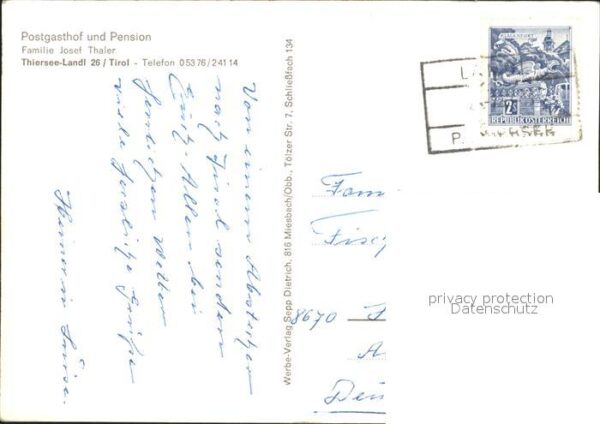 Postgasthof und Pension
Familie Josef Thaler
Thiersee-Landl 26 / Tirol - Telefon 05376/24114
Von einem Abstecher
nach Tirol senden
Euch Allen bei
herrlichem Wetter
viele herzliche Grüße
Heiner u. Luise.
Werbe-Verlag Sepp Dietrich, 816 Miesbach/Obb., Tölzer Str. 7, Schließfach 134
2S
REPUBLIK ÖSTERREICH
Fam
Fisc
8670
privacy protection
Datenschutz